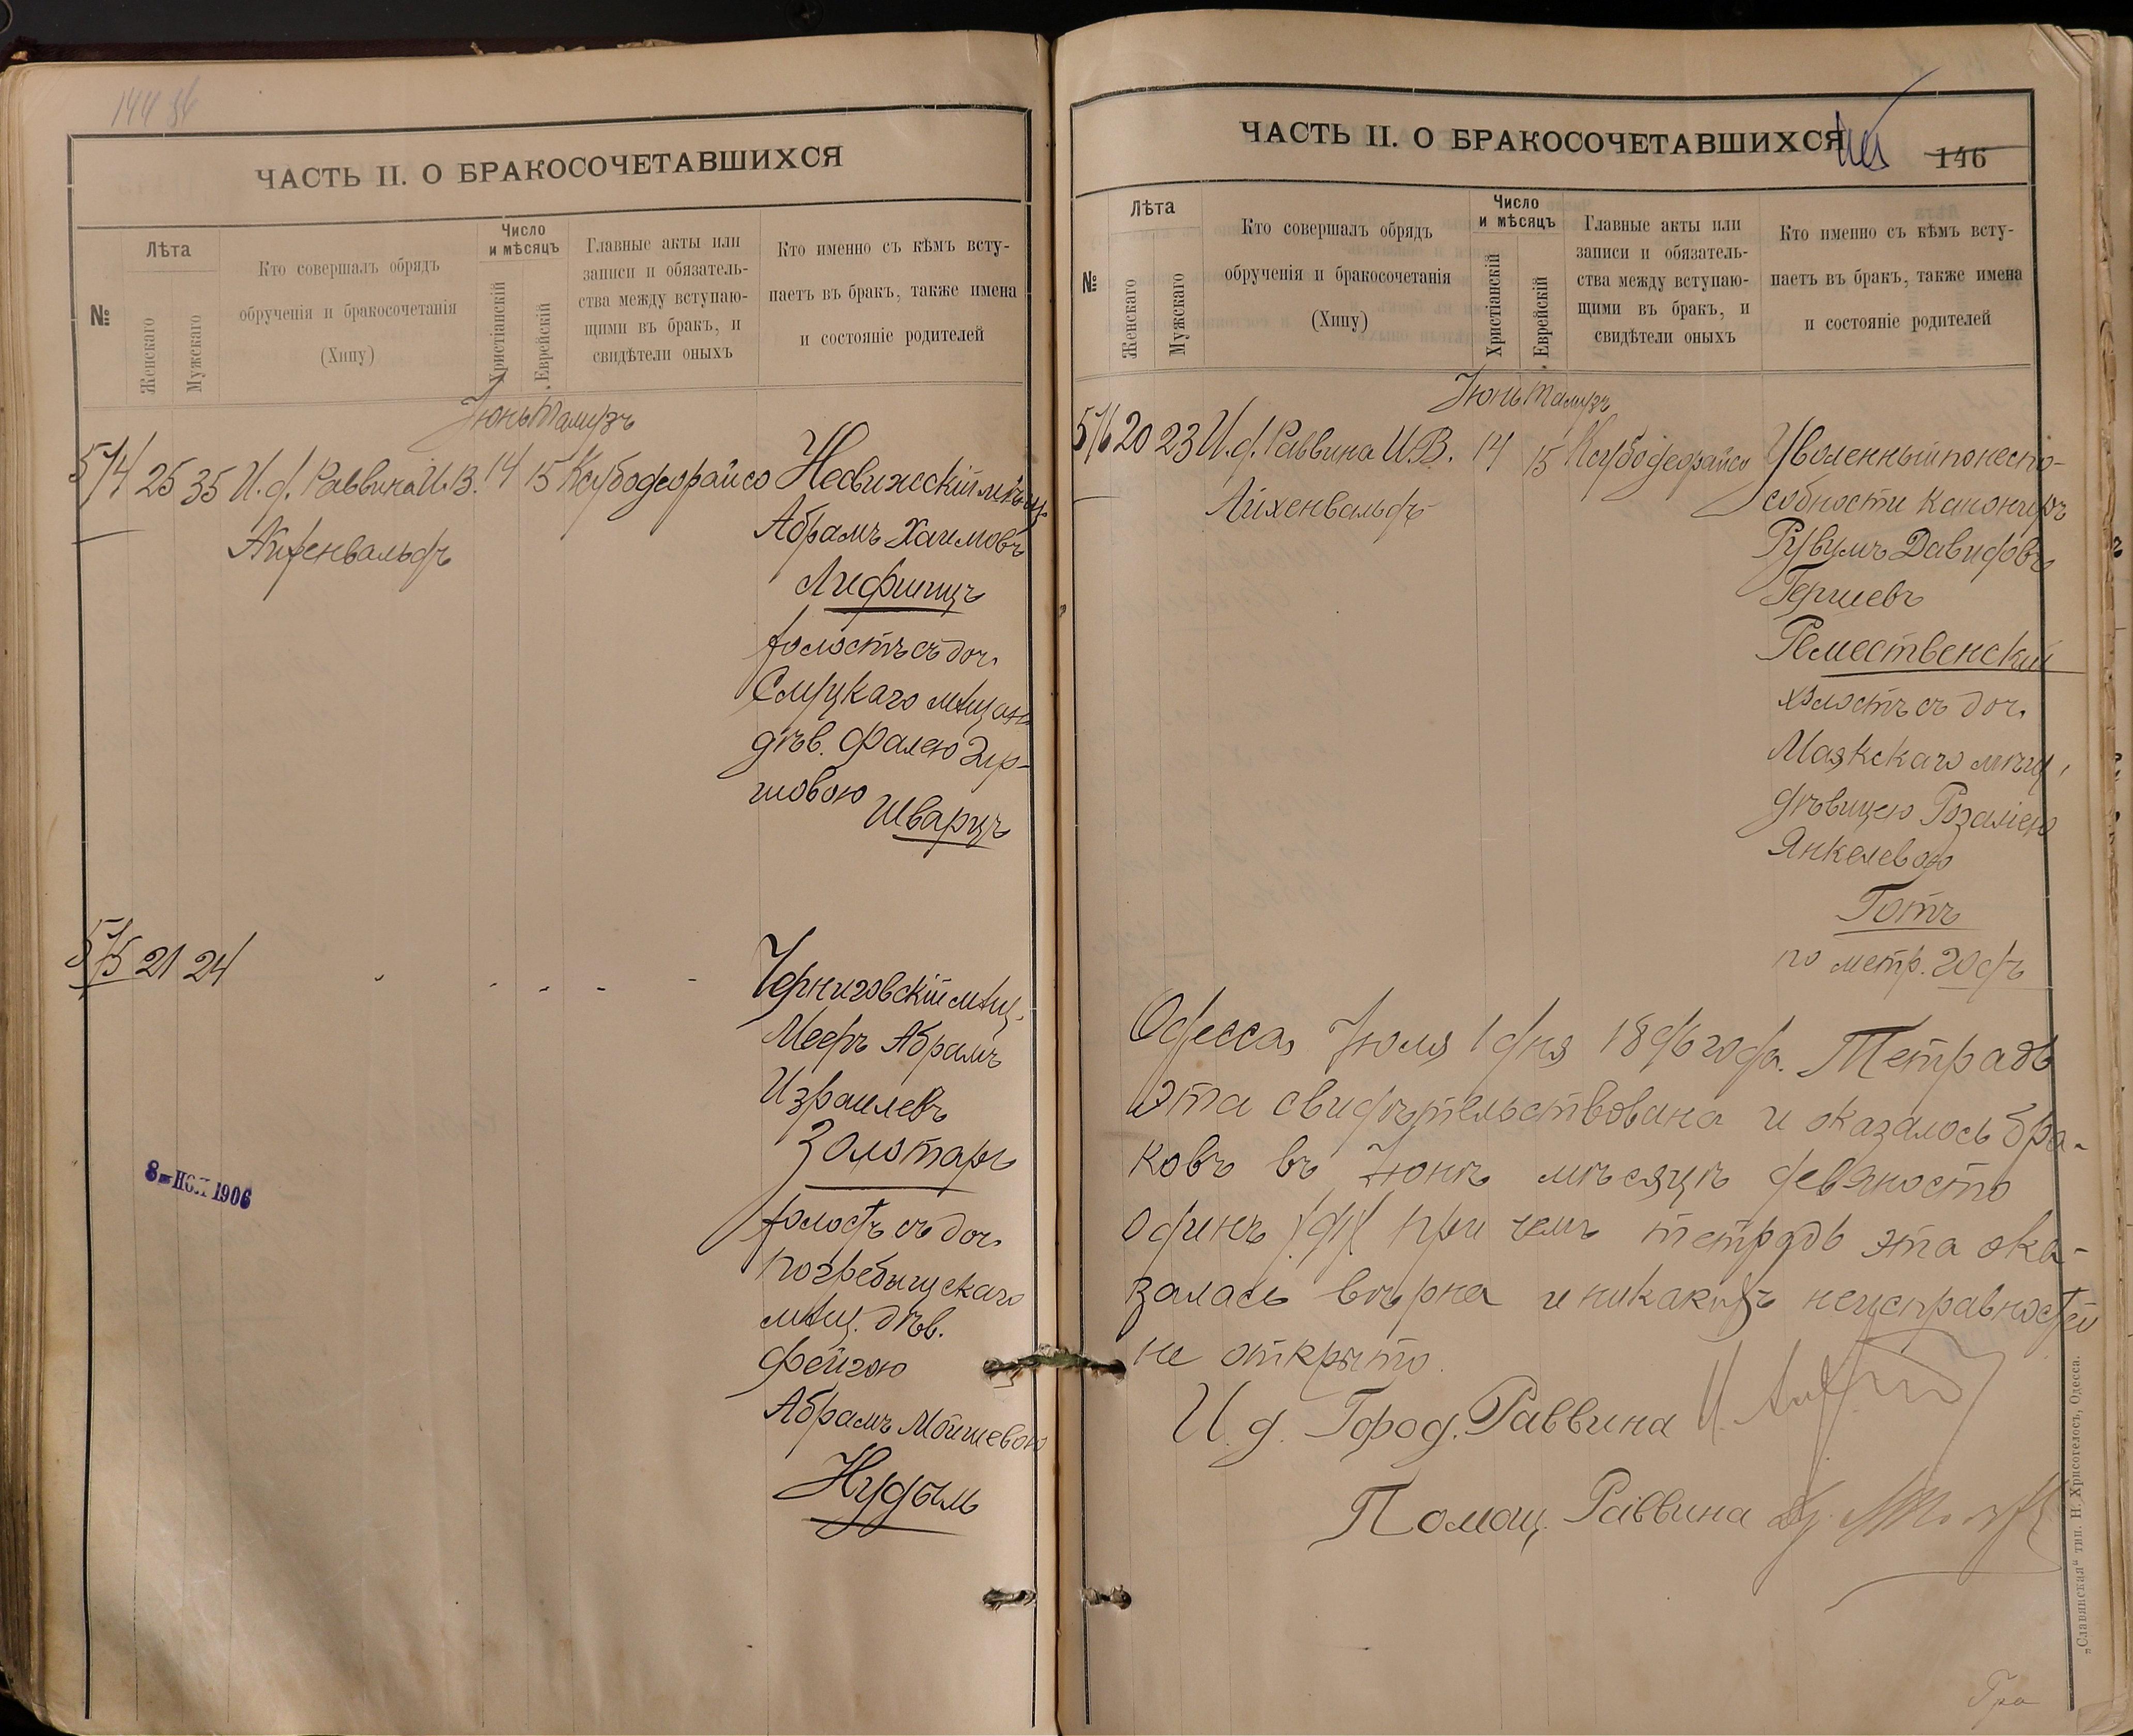 144
ЧАСТЬ II. О БРАКОСОЧЕТАВШИХСЯ
№
Лѣта
Женскаго
Мужскаго
Кто совершалъ обрядъ
обрученія и бракосочетанія
(Хипу)
Число
и мѣсяцъ
Христіанскій
Еврейскій
Главные акты или
записи и обязатель-
ства между вступаю-
щими въ бракъ, и
свидѣтели оныхъ
Кто именно съ кѣмъ всту-
паетъ въ бракъ, также имена
и состояніе родителей
Іюнь Тамузъ
574 25 35 И. д. Раввина И. В. 14 15 Ксубодеорайсо Несвижскій мѣщ
Айхенвальдъ
Абрамъ Хаимовъ
Лифшицъ
холостъ съ доч.
Слуцкаго мѣщан
дѣв. Фалею Гер-
шовою
Шварцъ
575 21 24 - - - - - Черниговскій мѣщ.
Мееръ Абрамъ
Израилевъ
Золотарь
холостъ съ доч.
Погребыщскаго
мѣщ. дѣв.
Фейгою
Абрамъ Мойшевою
Нудыль
8 НОЯ 1906
ЧАСТЬ II. О БРАКОСОЧЕТАВШИХСЯ
146
№
Лѣта
Женскаго
Мужскаго
Кто совершалъ обрядъ
обрученія и бракосочетанія
(Хипу)
Число
и мѣсяцъ
Христіанскій
Еврейскій
Главные акты или
записи и обязатель-
ства между вступаю-
щими въ бракъ, и
свидѣтели оныхъ
Кто именно съ кѣмъ всту-
паетъ въ бракъ, также имена
и состояніе родителей
Іюнь Тамузъ
576 20 23 И. д. Раввина И. В. 14 15 Ксубодеорайсо Уволенный по неспо-
Айхенвальдъ
собности канониръ
Рувимъ Давидовъ
Гершевъ
Ремественскій
холостъ съ доч.
Маякскаго мѣщ.
дѣвицею Розаліею
Янкелевою
Готъ
по метр.
Одесса, Іюля 1 дня 1896 года. Тетрадь
эта свидѣтельствована и оказалось бра-
ковъ въ Іюнѣ мѣсяцѣ девяносто
одинъ /91/ при чемъ тетрадь эта ока-
залась вѣрна и никакихъ неисправностей
не открыто.
И. д. Город. Раввина
Помощ. Раввина
„Славянская“ тип. Н. Хрисогелосъ, Одесса.